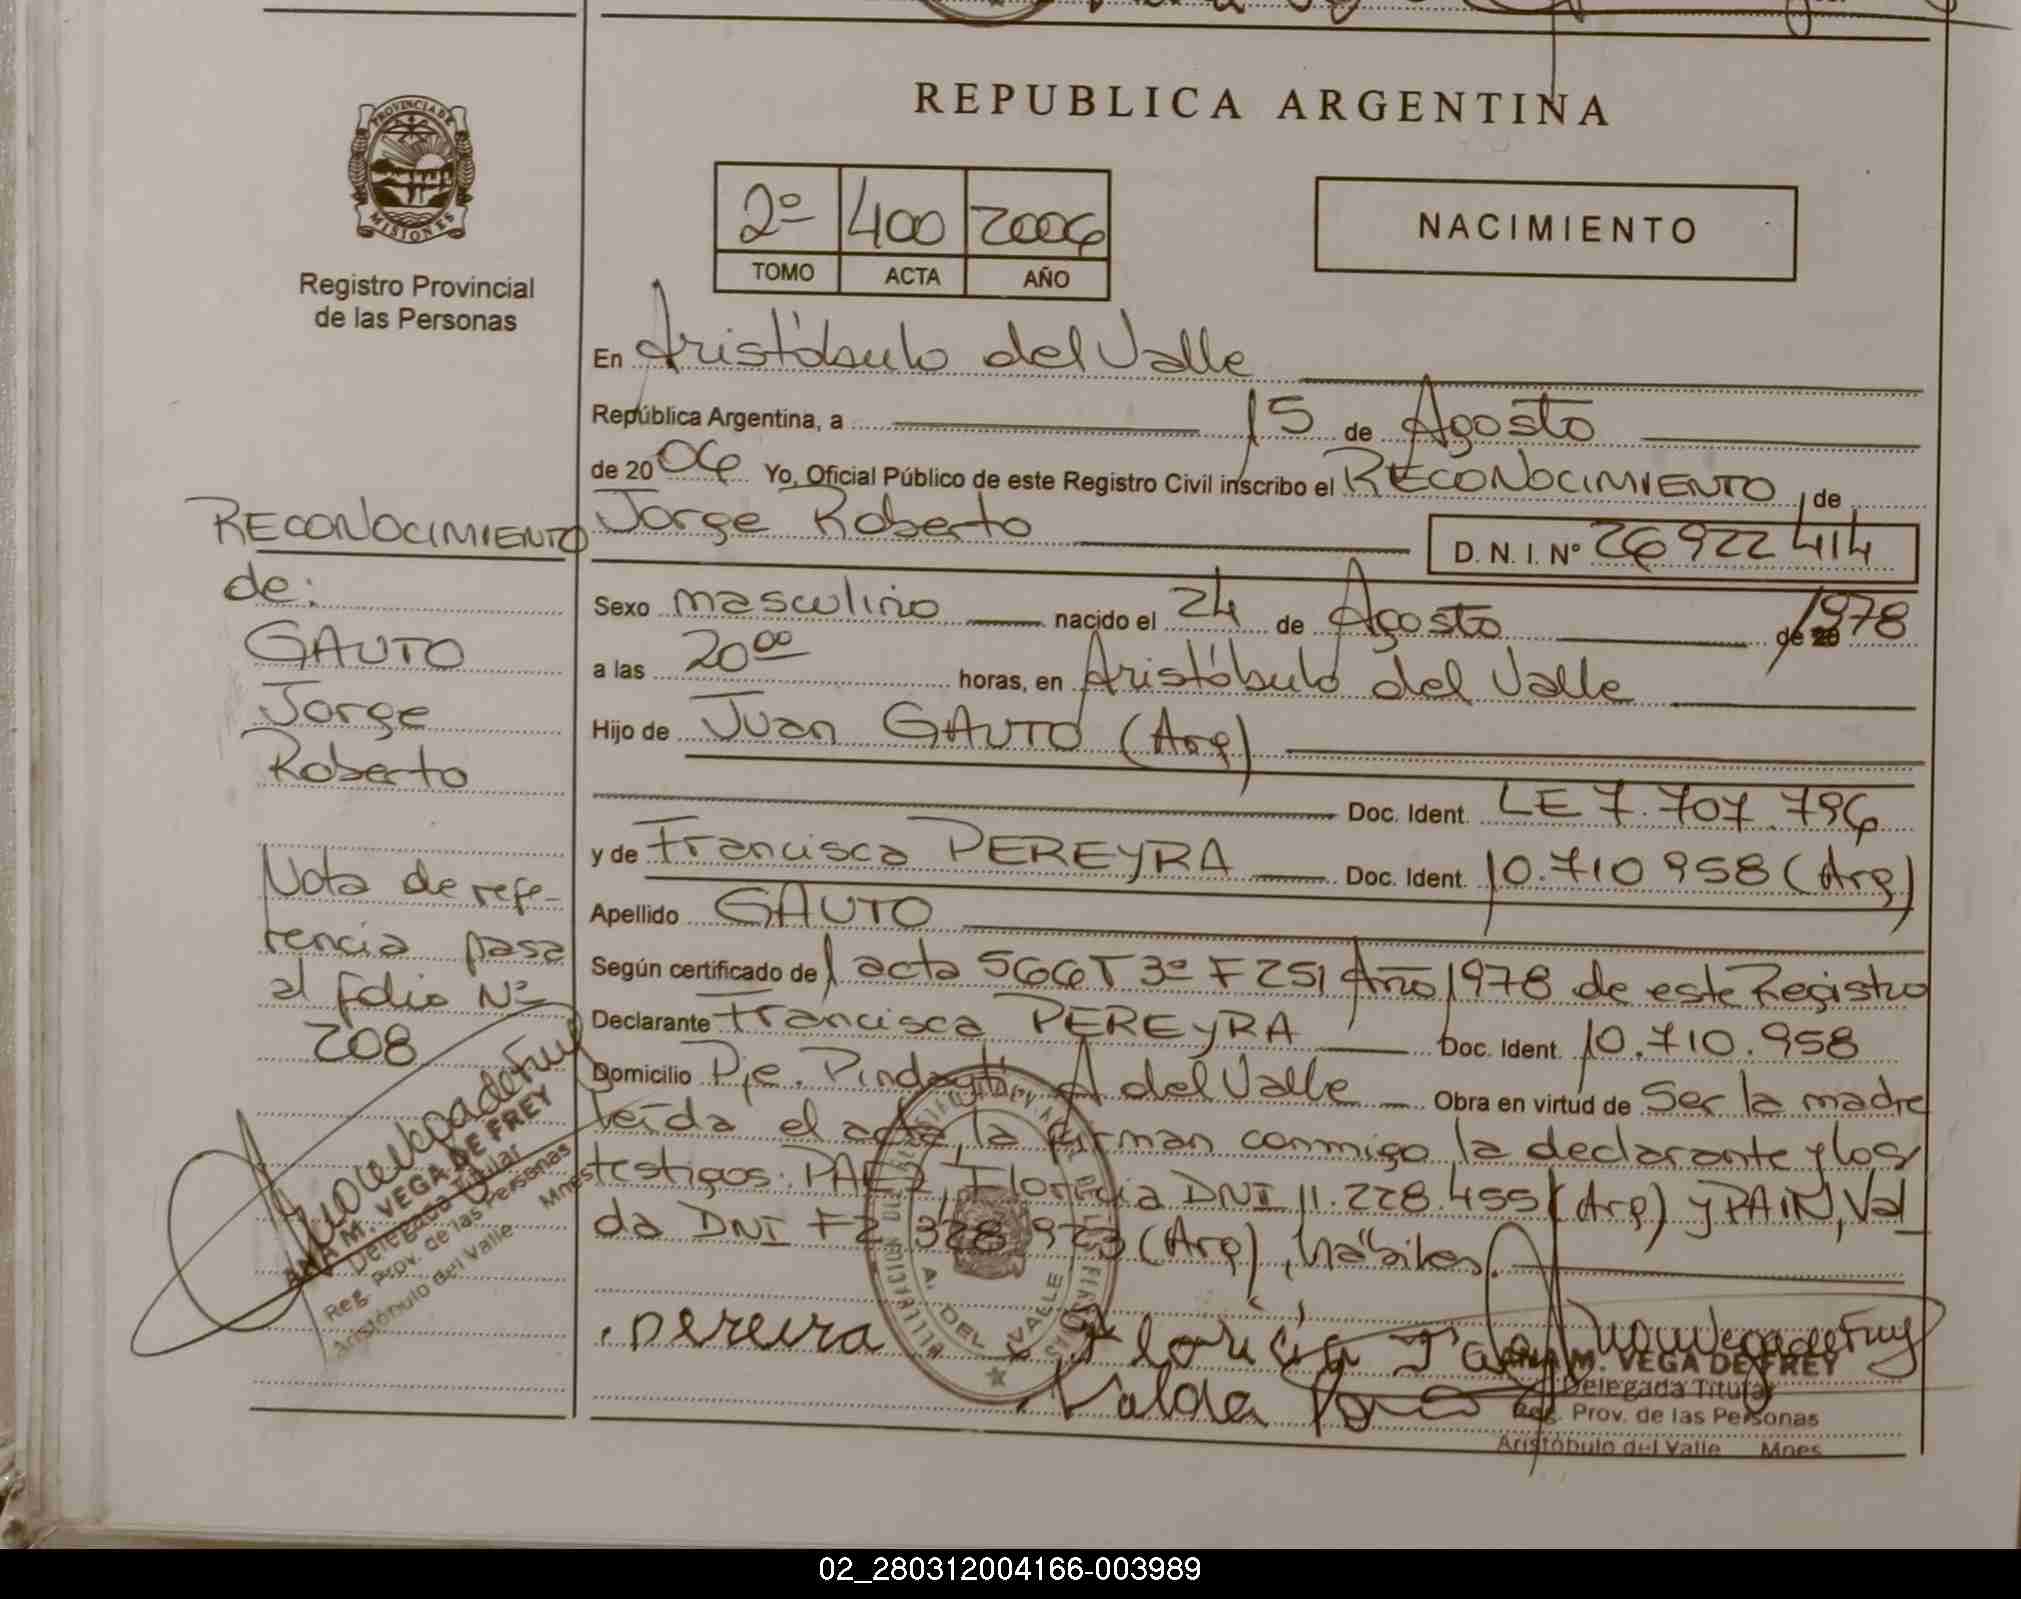 REPUBLICA ARGENTINA
PROVINCIA DE MISIONES
Registro Provincial
de las Personas
2º 400 2006
TOMO ACTA AÑO
NACIMIENTO
En Aristóbulo del Valle
República Argentina, a 15 de Agosto
de 2006 Yo, Oficial Público de este Registro Civil inscribo el RECONOCIMIENTO, de
Jorge Roberto D. N. I. Nº 26922414
Sexo masculino nacido el 24 de Agosto de 1978
a las 20⁰⁰ horas, en Aristóbulo del Valle
Hijo de Juan GAUTO (Arg)
Doc. Ident. LE 7.707.796
y de Francisca PEREYRA Doc. Ident. 10.710958 (Arg)
Apellido GAUTO
Según certificado de acta 566 T 3º F 251 Año 1978 de este Registro
Declarante Francisca PEREYRA Doc. Ident. 10.710.958
Domicilio A del Valle Obra en virtud de Ser la madre
leída el acta, la firman conmigo, la declarante y los
testigos: PAEZ, DNI 11.228.455 (Arg) y PAIN, Val
da DNI (Arg), hábiles.
RECONOCIMIENTO
de:
GAUTO
Jorge
Roberto
Nota de refe-
rencia pasa
al folio Nº
208
ANA M. VEGA DE FREY
Delegada Titular
Reg. Prov. de las Personas
Aristóbulo del Valle Mnes
pereira
A. DEL VALLE
Valda
ANA M. VEGA DE FREY
Delegada Titular
Reg. Prov. de las Personas
Aristóbulo del Valle Mnes
02_280312004166-003989